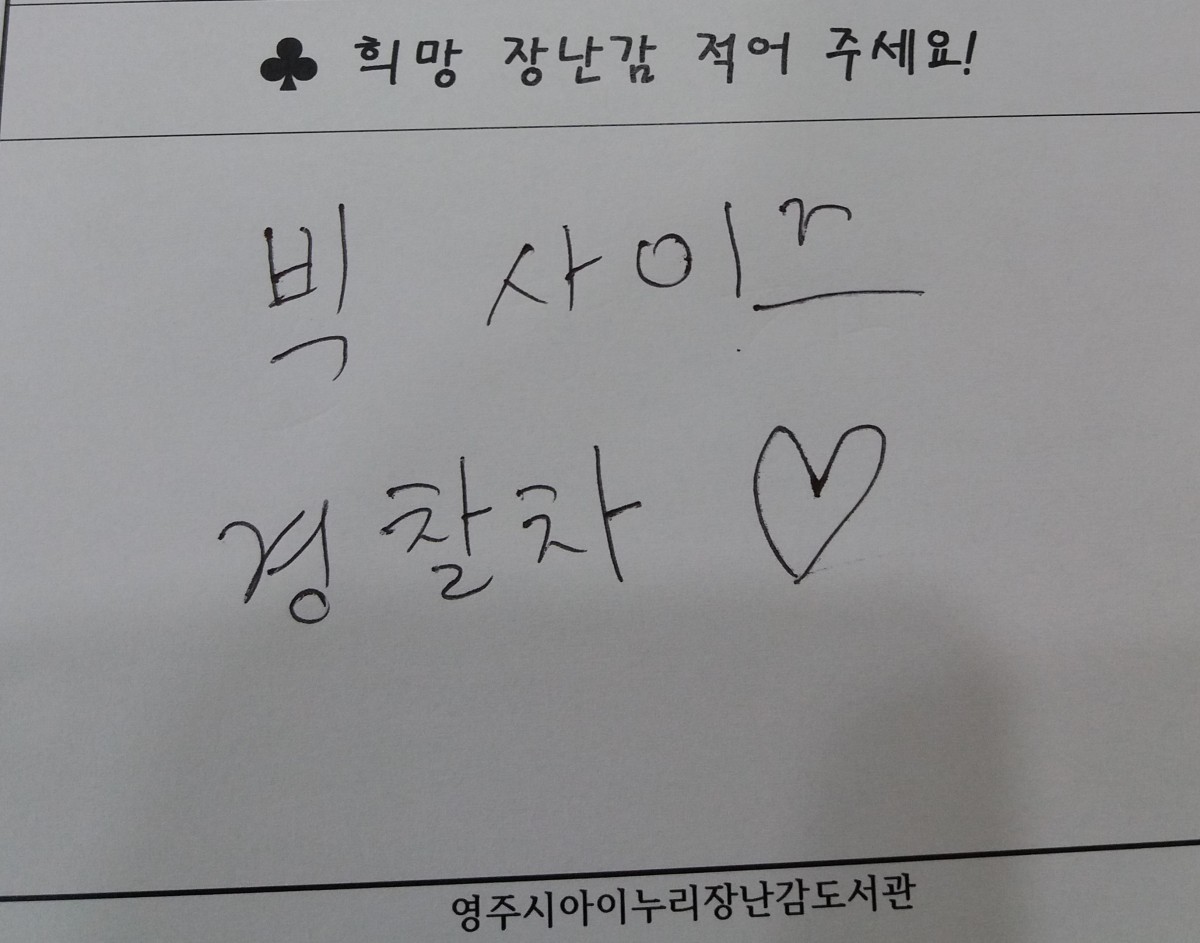 ♣ 희망 장난감 적어 주세요!
빅 사이즈
경찰차 ♡
영주시아이누리장난감도서관